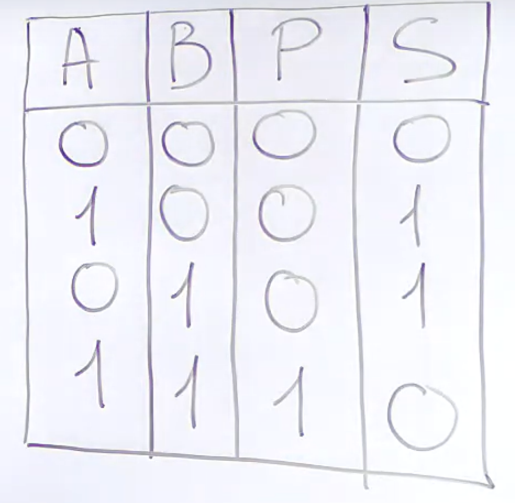 A B P S
0 0 0 0
1 0 0 1
0 1 0 1
1 1 1 0